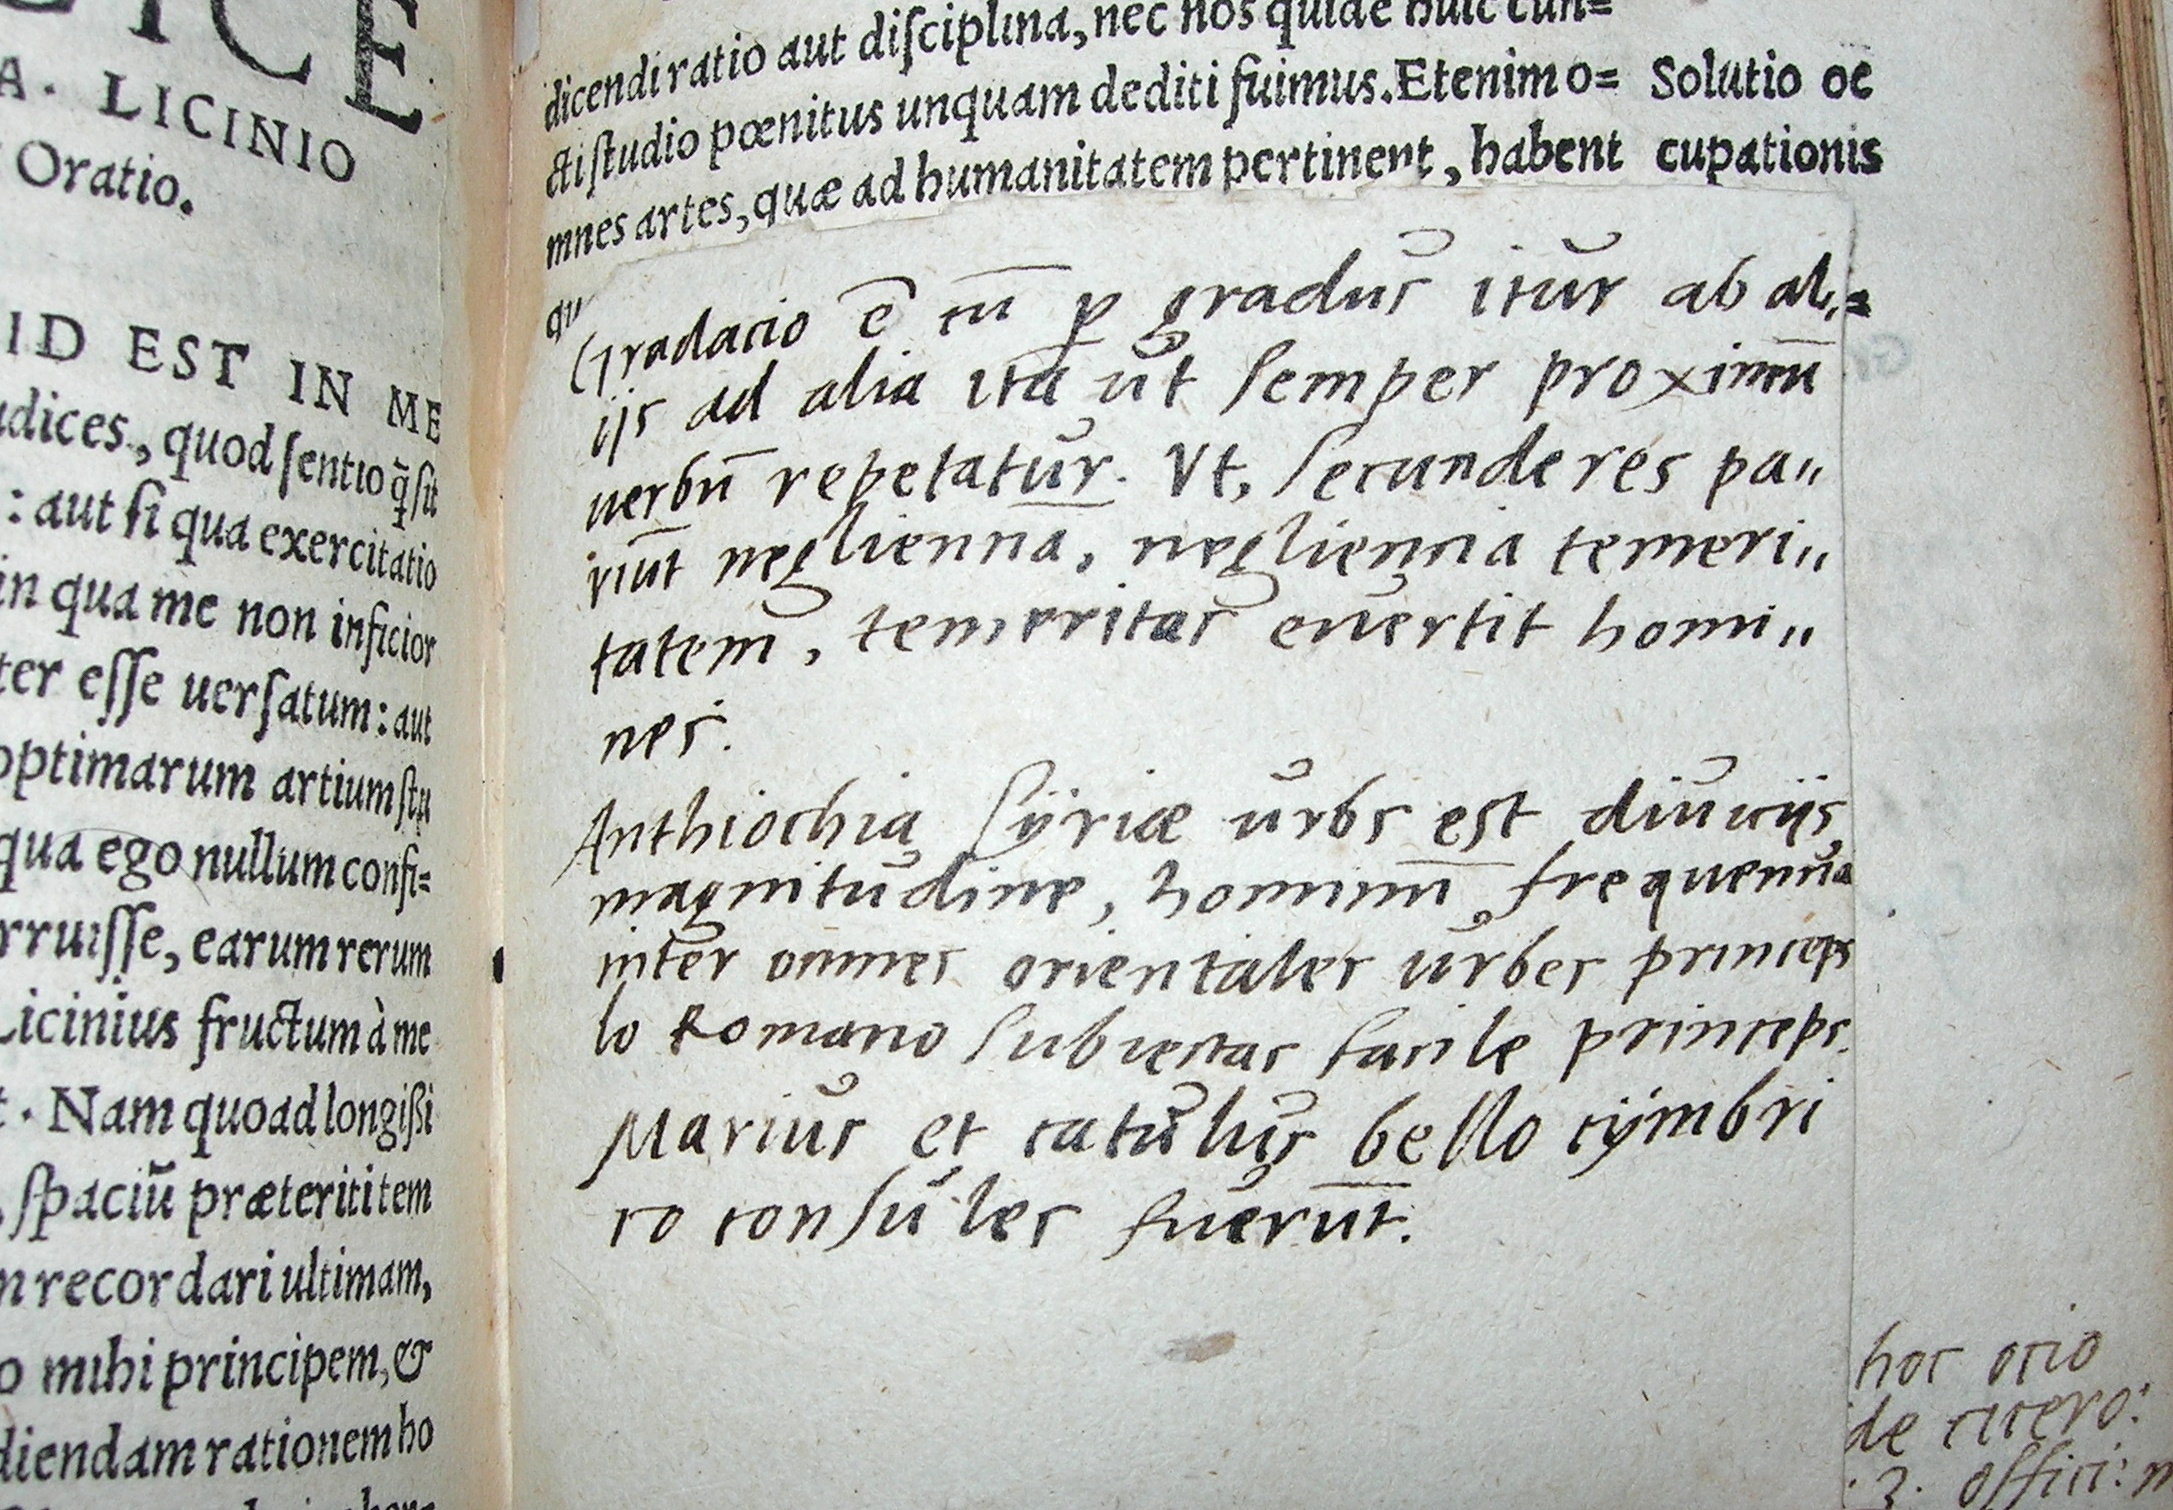 ICE
A. LICINIO
Oratio.
ID EST IN ME
udices, quod sentio q̄̃ sit
: aut si qua exercitatio
in qua me non inficior
ter esse uersatum: aut
optimarum artium stu
qua ego nullum confi=
rruisse, earum rerum
Licinius fructum à me
t. Nam quoad longißi
, spaciũ præteriti tem
n recordari ultimam,
o mihi principem, &
diendam rationem ho
dicendi ratio aut disciplina, nec nos quidē huic cun=
cti studio pœnitus unquam dediti fuimus. Etenim o=
mnes artes, quæ ad humanitatem pertinent, habent
qu
Solutio oc
cupationis
Gradacio ē cū p gradus itur ab al,=
ijs ad alia ita ut semper proximū
uerbū repetatur. Vt, secunde res pa,,
riūt negliencia, negliencia temeri,,
tatem, temeritas euertit homi,,
nes.
Anthiochia syriæ urbs est diuicijs
magnitudine, hominū frequencia
inter omnes orientales urbes princeps
lo Romano subiectas facile princeps.
Marius et catulus bello cymbri
co consules fuerūt.
hoc ocio
de cicero:
.3. offici: